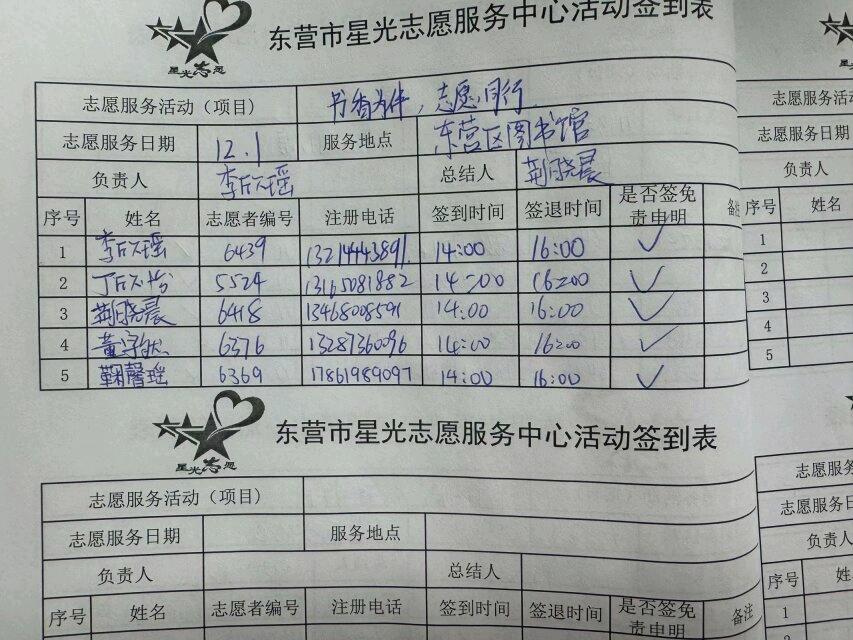 星光志愿
东营市星光志愿服务中心活动签到表
志愿服务活动（项目） 书香为伴，志愿同行
志愿服务日期 12.1 服务地点 东营区图书馆
负责人 总结人 荆晓晨
序号 姓名 志愿者编号 注册电话 签到时间 签退时间 是否签免责申明 备注
1 6439 13214443891 14:00 16:00 ✓
2 5524 13165081882 14:00 16:00 ✓
3 荆晓晨 6418 13468008591 14:00 16:00 ✓
4 6376 13287360096 14:00 16:00 ✓
5 鞠馨瑶 6369 17861989097 14:00 16:00 ✓
星光志愿
东营市星光志愿服务中心活动签到表
志愿服务活动（项目）
志愿服务日期 服务地点
负责人 总结人
序号 姓名 志愿者编号 注册电话 签到时间 签退时间 是否签免责申明 备注
志愿服务活
志愿服务日期
负责人
序号 姓名
1
2
3
4
5
志愿服务
志愿服务日
负责人
序号 姓
1